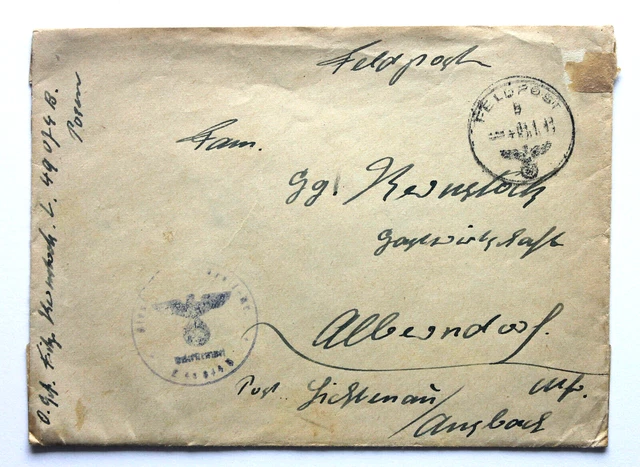 Feldpost
FELDPOST
b
Fam.
Gg. Kernstock
Gastwirtschaft
Alberndorf.
Post Lichtenau Mfr.
/Ansbach
O.Gef. Kernstock. L. 49074 B.
Posen